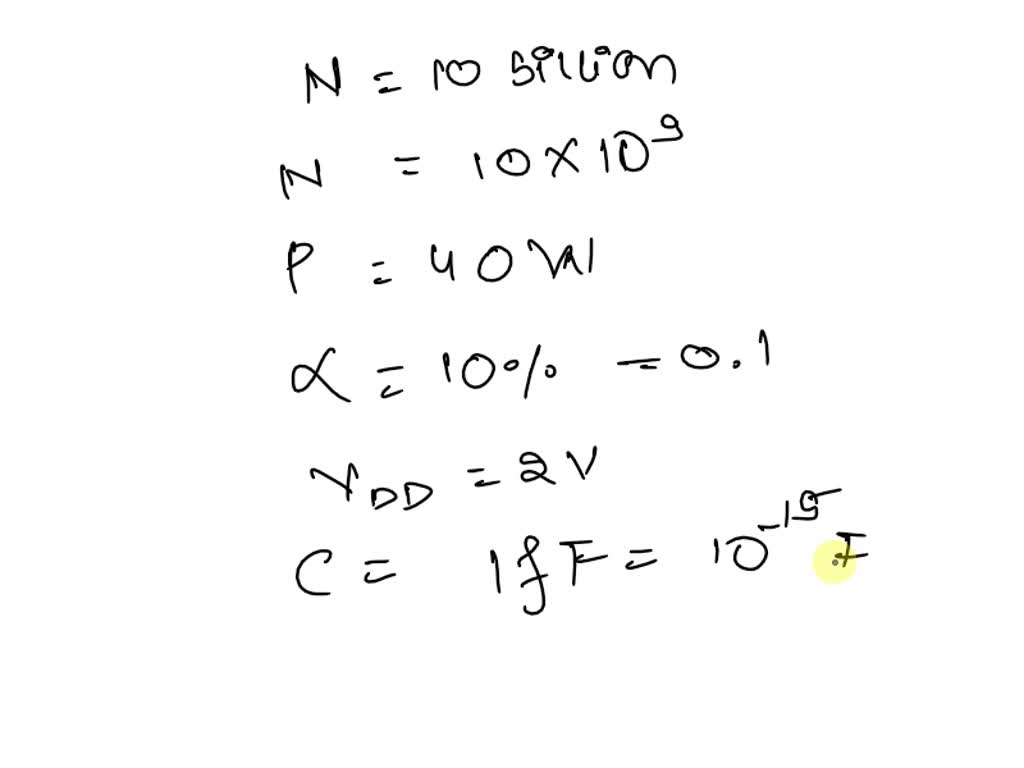 N = 10 billion
N = 10 × 10⁹
P = 40 W
α = 10% = 0.1
V_DD = 2V
C = 1fF = 10⁻¹⁵ F